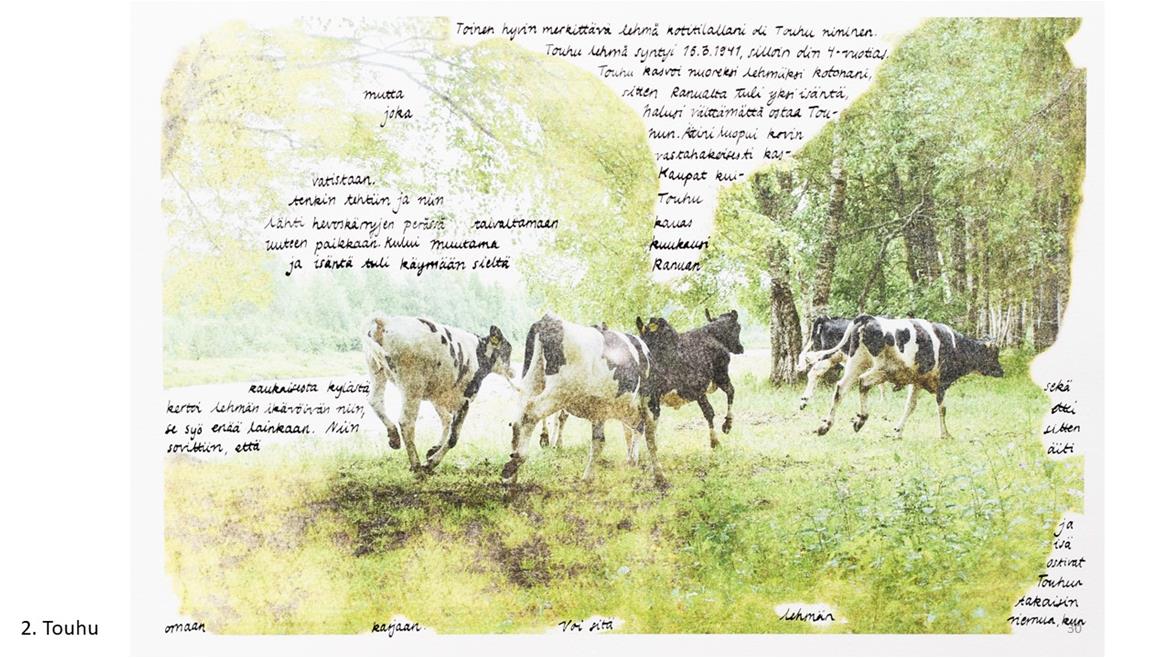 Toinen hyvin merkittävä lehmä kotitilallani oli Touhu niminen.
Touhu lehmä syntyi 16.3.1941, silloin olin 4-vuotias.
Touhu kasvoi nuoreksi lehmäksi kotonani,
mutta sitten Ranualta tuli yksi isäntä,
joka halusi välttämättä ostaa Tou-
hun. Äitini luopui kovin
vastahakoisesti kas-
vatistaan. Kaupat kui-
tenkin tehtiin ja niin Touhu
lähti hevoskärryjen perässä taivaltamaan kauas
uuteen paikkaan. Kului muutama kuukausi
ja isäntä tuli käymään sieltä Ranuan
kaukaisesta kylästä sekä
kertoi lehmän ikävöivän niin, ettei
se syö enää lainkaan. Niin sitten
sovittiin, että äiti
ja
isä
ostivat
Touhun
takaisin
omaan karjaan. Voi sitä lehmän riemua, kun
2. Touhu
30